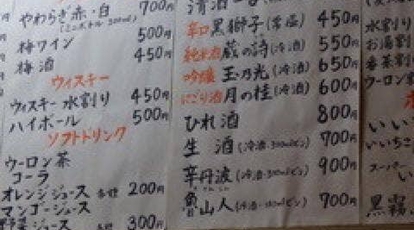 やわらぎ赤・白 700円
(ミニボトル 300ml)
梅ワイン 500円
梅酒 450円
ウィスキー
ウィスキー水割り 450円
ハイボール 500円
ソフトドリンク
ウーロン茶
コーラ
オレンジジュース 各種 200円
マンゴージュース
野菜ジュース 300円
清酒
辛口 黒獅子(常温) 450円
純米酒 蔵の詩(冷酒) 550円
吟醸 玉乃光(冷酒) 650円
にごり酒 月の桂(冷酒) 600円
ひれ酒 800円
生酒 (冷酒・300mlビン) 700円
辛丹波 (冷酒・300mlビン) 900円
魯山人 (冷酒・300mlビン) 700円
水割り
お湯割
番茶割
ウーロン
いい
いいちこ
スーパー
い
黒霧